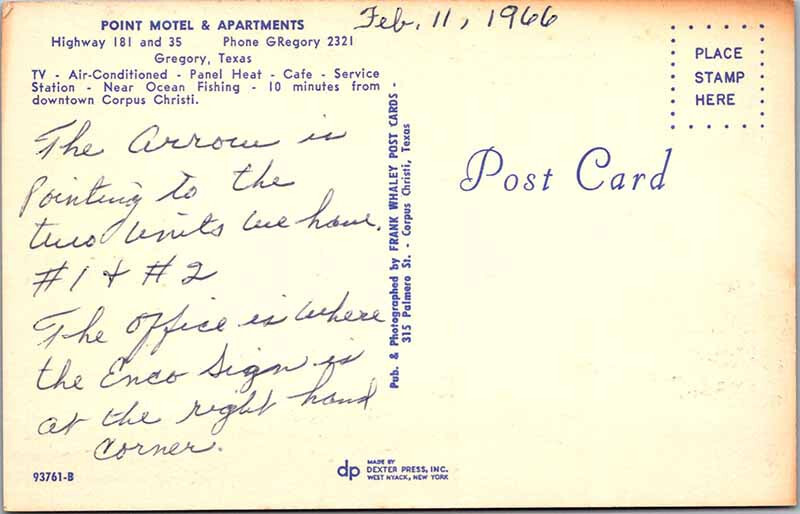 POINT MOTEL & APARTMENTS
Highway 181 and 35 Phone GRegory 2321
Gregory, Texas
TV - Air-Conditioned - Panel Heat - Cafe - Service
Station - Near Ocean Fishing - 10 minutes from
downtown Corpus Christi.
Feb. 11, 1966
The arrow is
pointing to the
two units we have.
#1 & #2
The office is where
the Enco Sign is
at the right hand
corner.
93761-B
Pub. & Photographed by FRANK WHALEY POST CARDS -
315 Palmero St. - Corpus Christi, Texas
dp
MADE BY
DEXTER PRESS, INC.
WEST NYACK, NEW YORK
Post Card
PLACE
STAMP
HERE